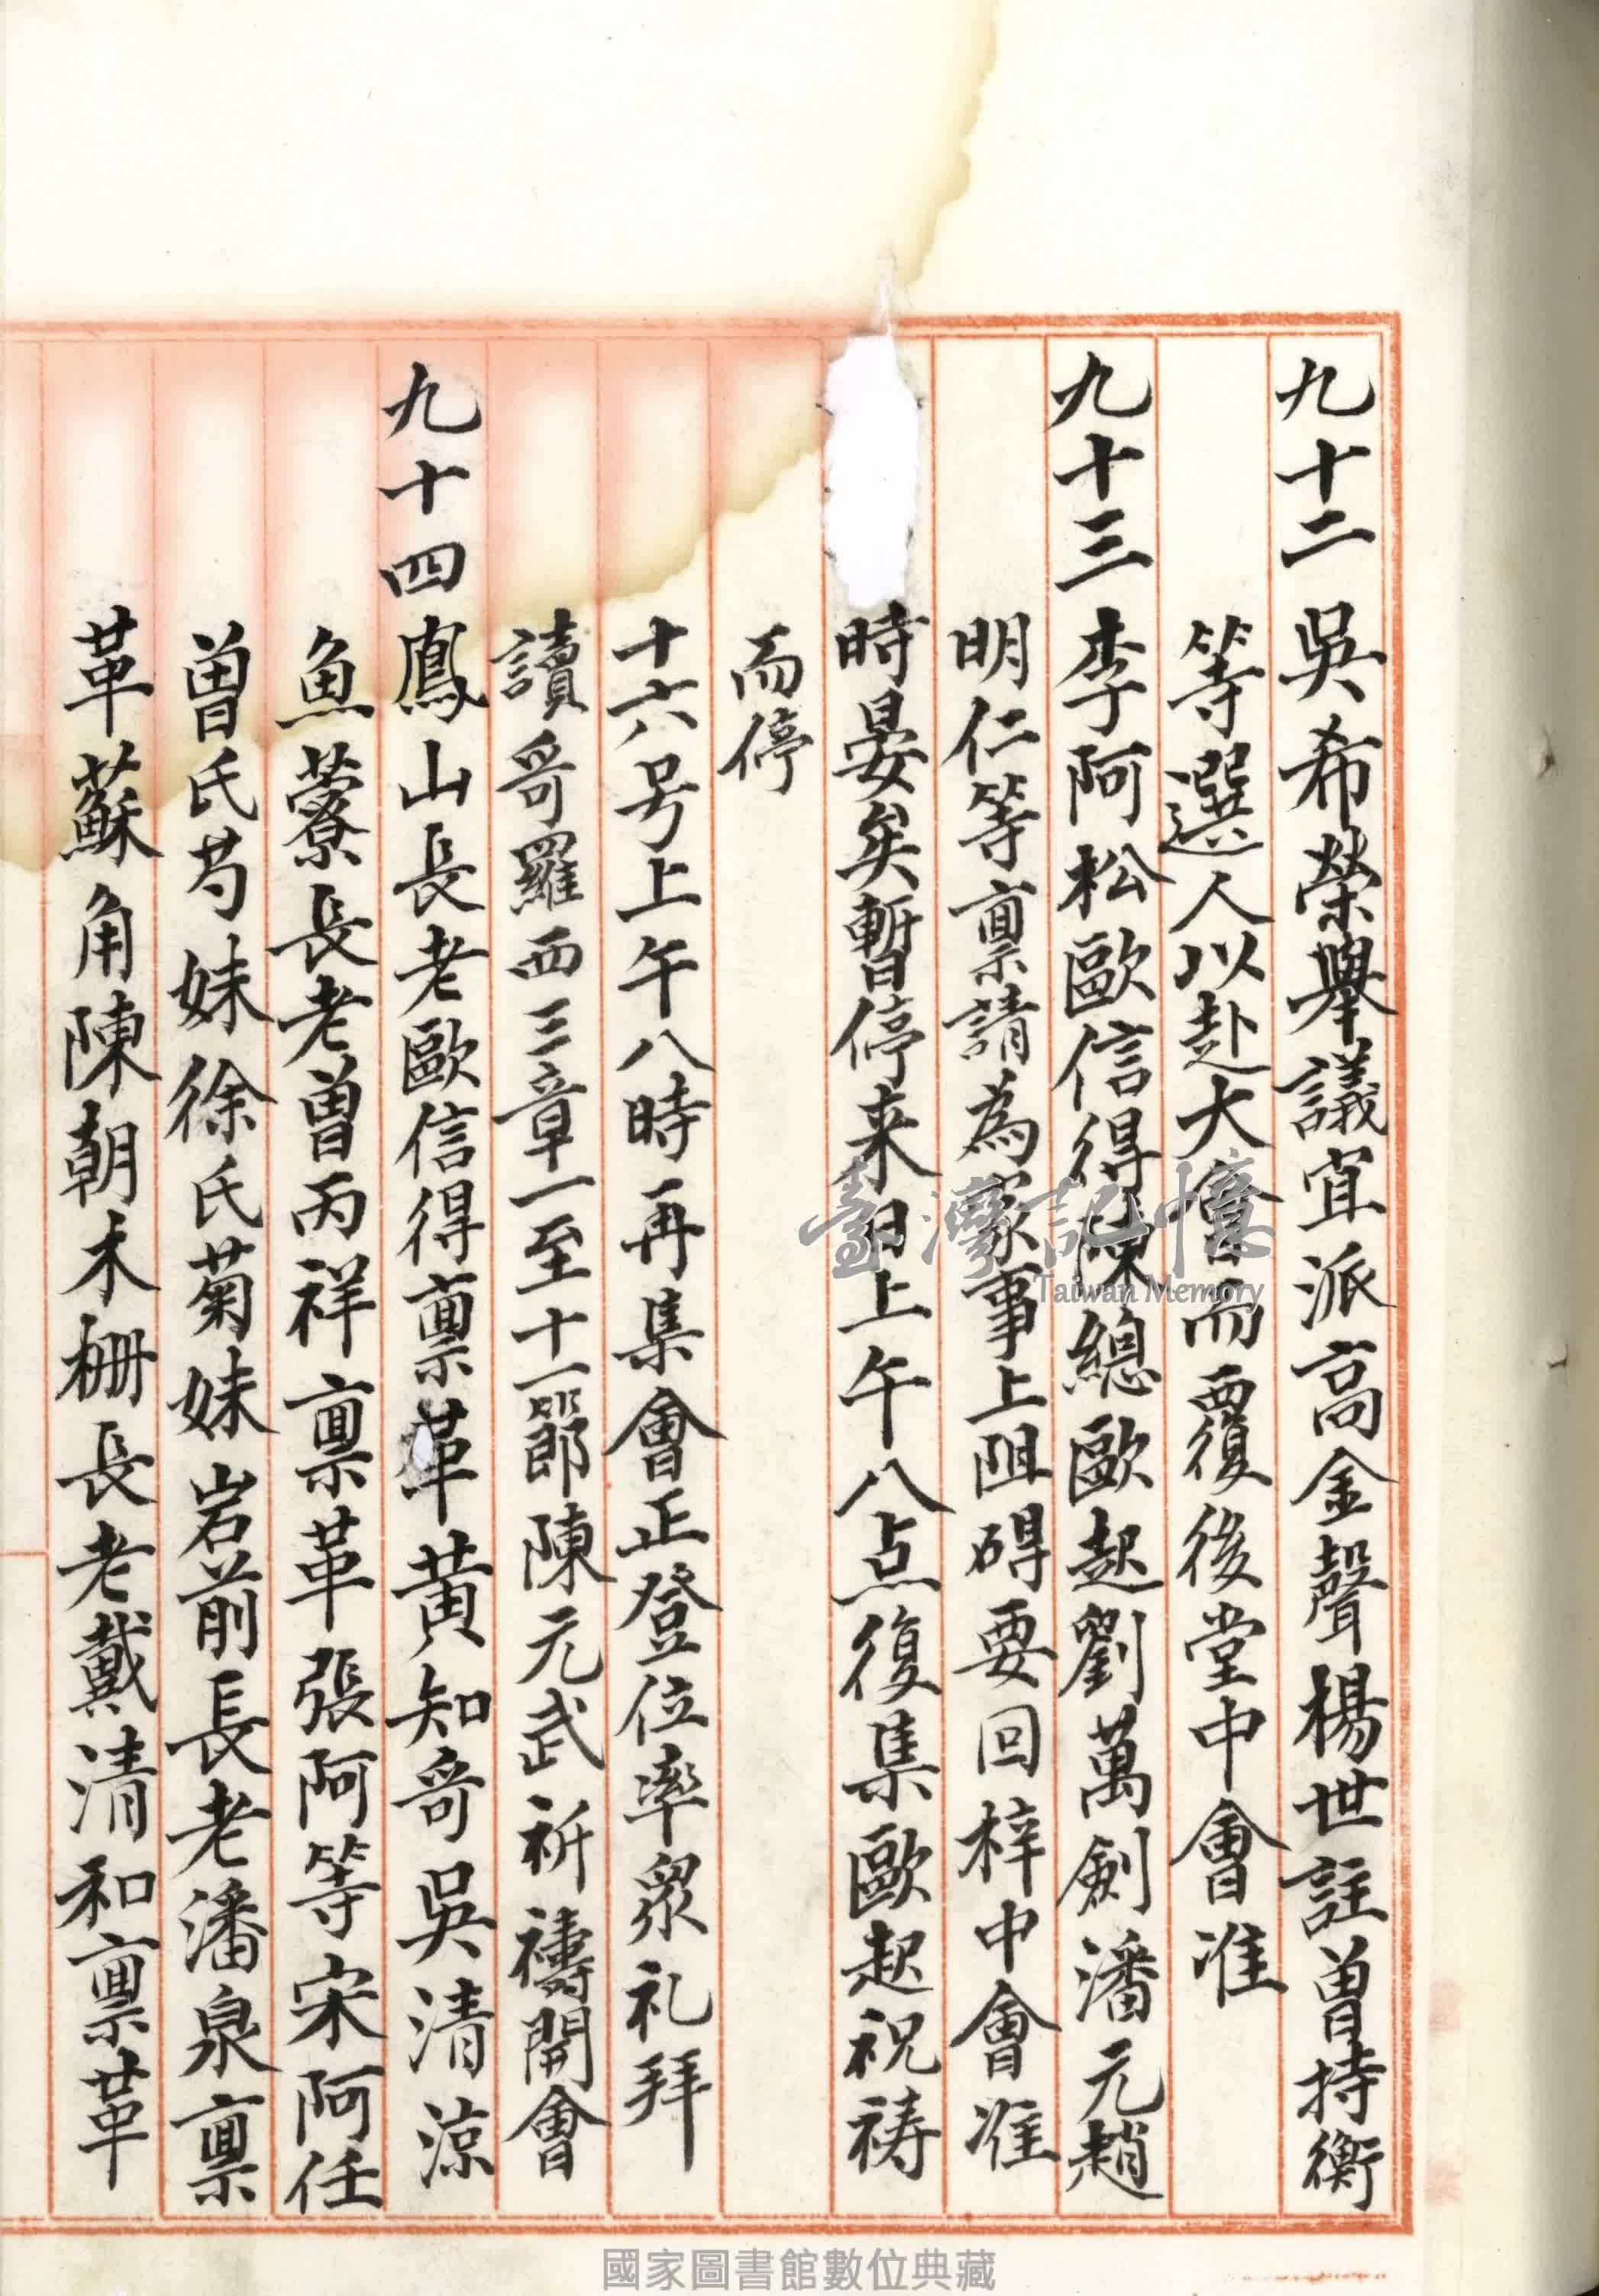 九十二吳希榮舉議宜派高金聲楊世註曾持衡
等選人以赴大會而覆後堂中會准
九十三李阿松歐信得陳總歐起劉萬劍潘元趙
明仁等稟請為家事上阻碍要回梓中會准
時晏矣暫停来日上午八点復集歐起祝禱
而停
十六号上午八時再集會正登位率眾礼拜
讀哥羅西三章一至十一節陳元武祈禱開會
九十四鳳山長老歐信得稟革黃知哥吳清涼
魚藔長老曾丙祥稟革張阿等宋阿任
曾氏芍妹徐氏菊妹岩前長老潘泉稟
革蘇角陳朝木柵長老戴清和稟革
臺灣記憶
Taiwan Memory
國家圖書館數位典藏